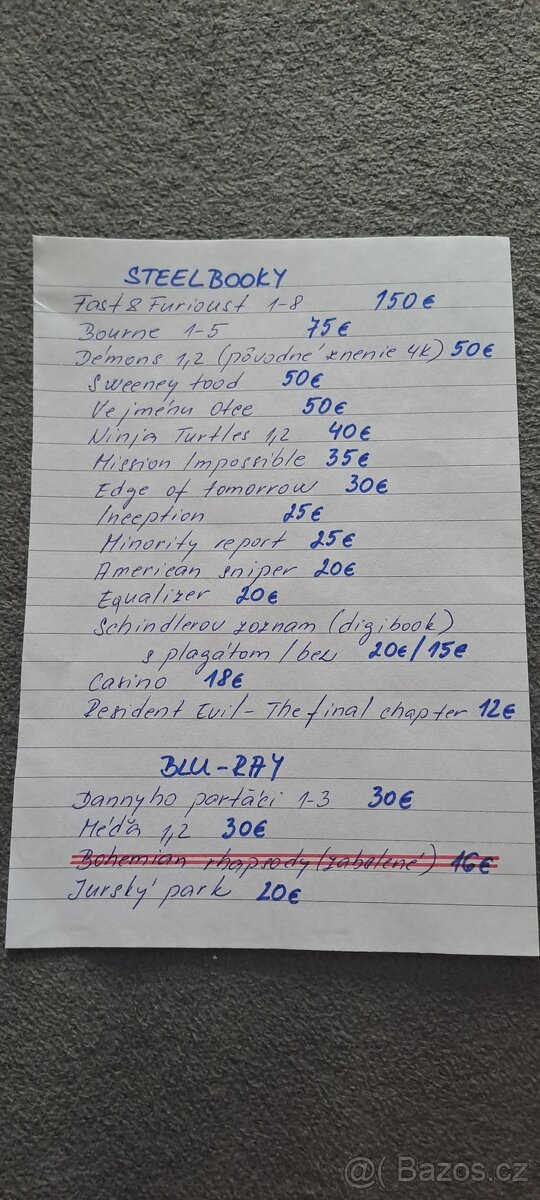 STEELBOOKY
Fast & Furioust 1-8 150€
Bourne 1-5 75€
Démons 1,2 (pôvodné znenie 4k) 50€
Sweeney tood 50€
Ve jménu Otce 50€
Ninja Turtles 1,2 40€
Mission Impossible 35€
Edge of tomorrow 30€
Inception 25€
Minority report 25€
American sniper 20€
Equalizer 20€
Schindlerov zoznam (digibook)
s plagátom / bez 20€/15€
Casino 18€
Resident Evil - The final chapter 12€
BLU-RAY
Dannyho parťáci 1-3 30€
Méďa 1,2 30€
Bohemian rhapsody (zabalené) 16€
Jurský park 20€
@( Bazos.cz